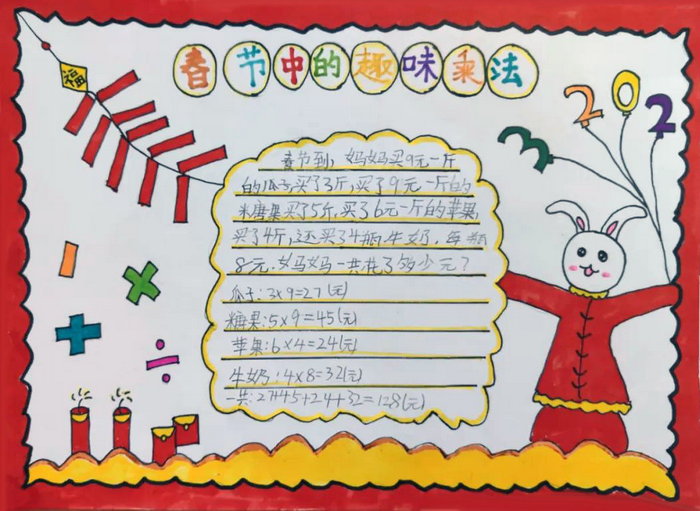 春节中的趣味乘法
福
2023
春节到,妈妈买9元一斤
的瓜子,买了3斤,买了9元一斤的
糖果买了5斤,买了6元一斤的苹果,
买了4斤,还买了4瓶牛奶,每瓶
8元.妈妈一共花了多少元?
瓜子:3×9=27(元)
糖果:5×9=45(元)
苹果:6×4=24(元)
牛奶:4×8=32(元)
一共:27+45+24+32=128(元)